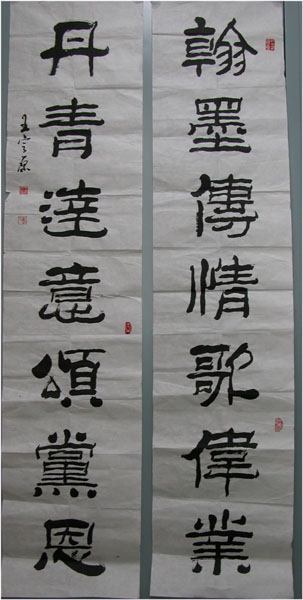 翰墨傳情歌偉業
丹青達意頌黨恩